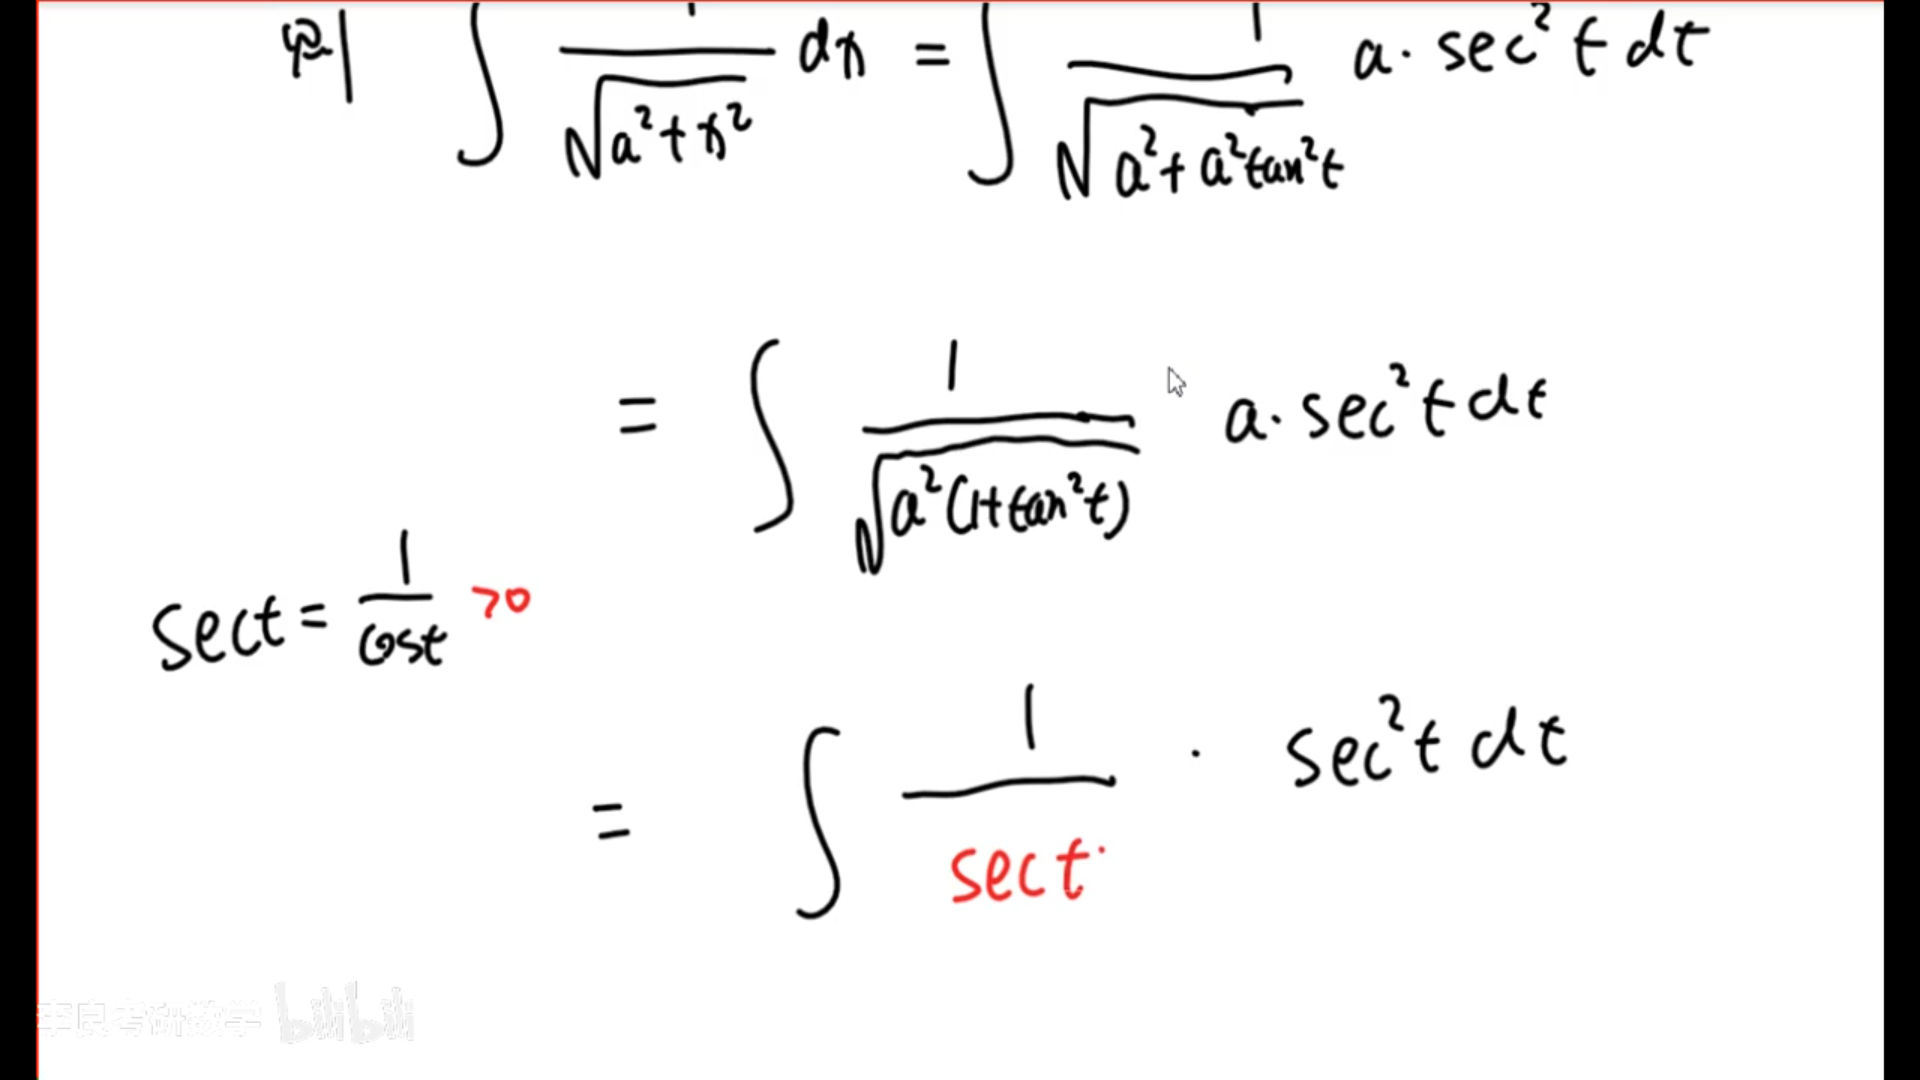 则 ∫ 1/√(a²+x²) dx = ∫ 1/√(a²+a²tan²t) a·sec²t dt
= ∫ 1/√(a²(1+tan²t)) a·sec²t dt
sect = 1/cost >0
= ∫ 1/sect · sec²t dt
李良考研数学 bilibili